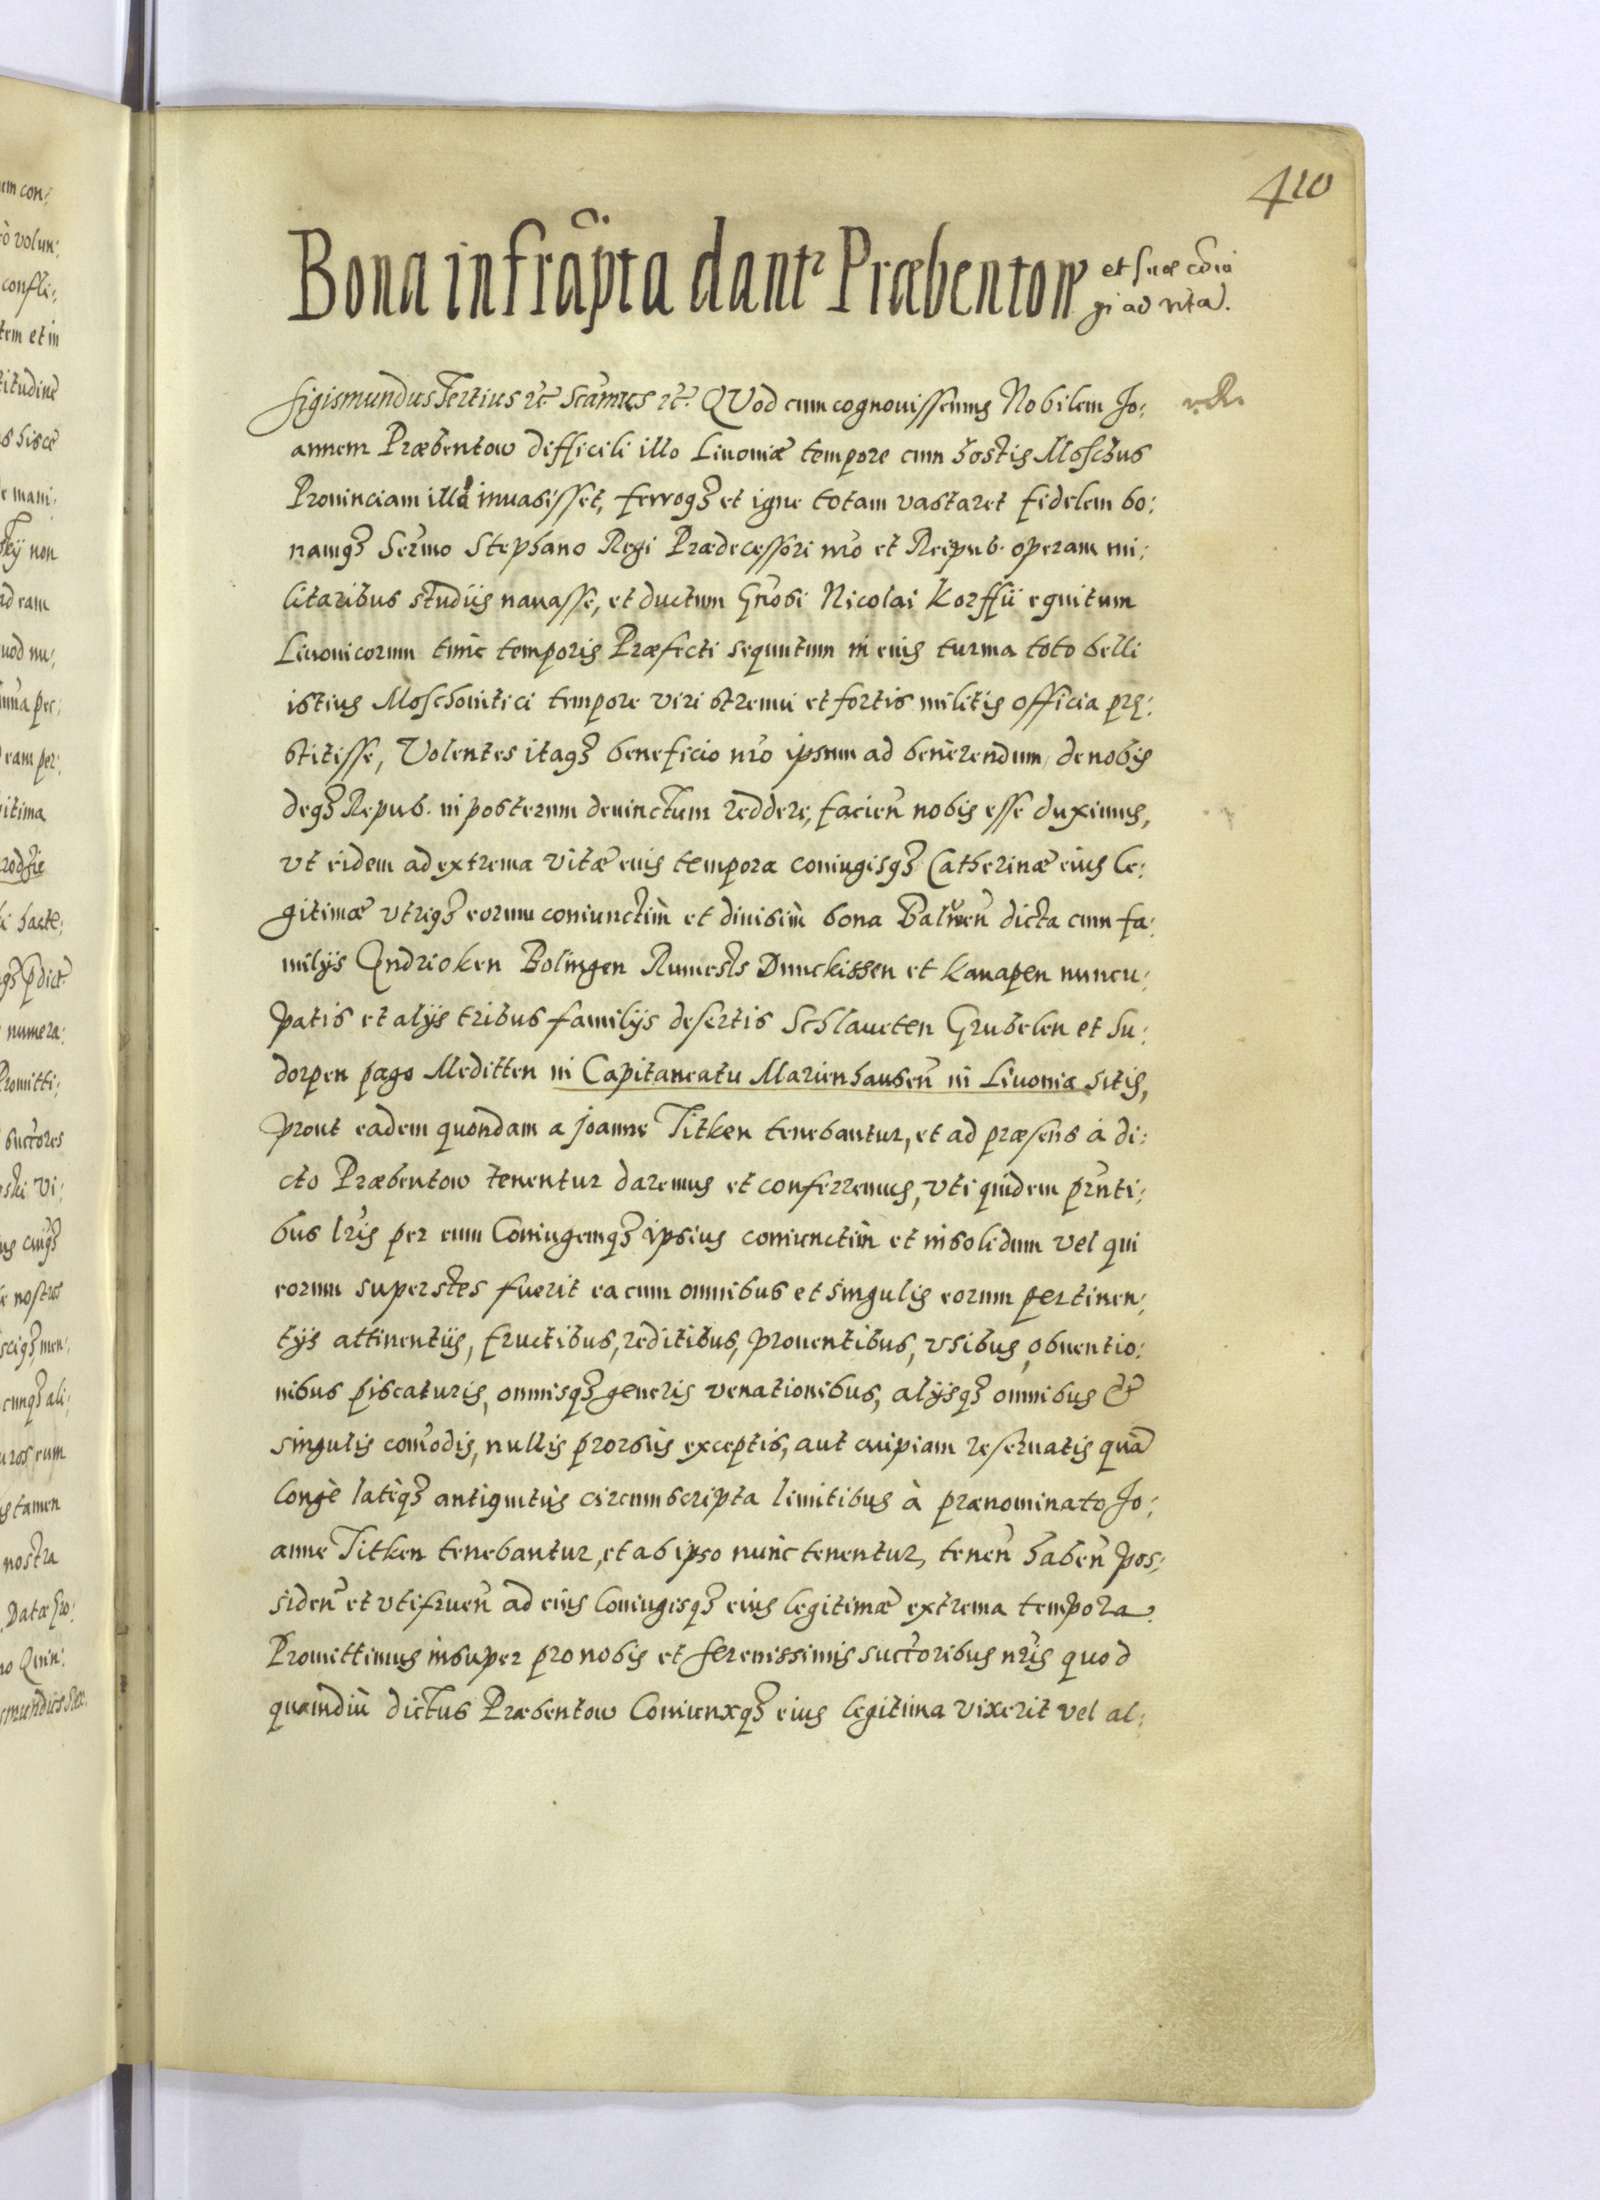 410
Bona infrascpta dantr Præbentow et suæ coniu
gi ad vitã.
Sigismundus Tertius etc̃ Scãmus etc̃. QUod cum cognouissemus Nobilem Jo:
annem Præbentow difficili illo Liuoniæ tempore cum hostis Moschus
Prouinciam illã inuasisset, ferroqȝ et igne totam vastaret fidelem bo:
namqȝ Serm̃o Stephano Regi Prædecessori nr̃o et Reipub. operam mi:
litaribus studijs nauasse, et ductum Gn̄osi Nicolai Korffij equitum
Liuonicorum tunc temporis Præfecti sequutum in euis turma toto belli
istius Moschouitici tempore viri strenui et fortis militis officia prę:
stitisse, Volentes itaqȝ beneficio nr̃o ipsum ad benèrendum, de nobis
deqȝ Repub. in posterum deuinctum reddere, facien̄ nobis esse duximus,
vt eidem ad extrema vitæ euis tempora coniugisqȝ Catherinæ eius le:
gitimæ vtriqȝ eorum coniunctim et diuisim bona Baluen̄ dicta cum fa:
milijs Indrioken Bolingen Rumests Dunckissen et Kauapen nuncu:
patis et alijs tribus familijs desertis Schlaueten Grubelen et Su:
dorpen pago Meditten in Capitaneatu Marienhausen̄ in Liuonia sitis,
prout eadem quondam a Joanne Titken tenebantur, et ad præsens à di:
cto Præbentow tenentur daremus et conferremus, vti quidem pr̃nti:
bus lr̃is per eum Coniugemqȝ ipsius coniunctim et insolidum vel qui
eorum superstes fuerit ea cum omnibus et singulis eorum pertinen:
tijs attinentijs, fructibus, reditibus, prouentibus, vsibus, obuentio:
nibus piscaturis, omnisqȝ generis venationibus, alijsqȝ omnibus &
singulis com̃odis, nullis prorsùs exceptis, aut cuipiam reseruatis quã
longè latèqȝ antiquitùs circumscripta limitibus à prænominato Jo:
anne Titken tenebantur, et ab ipso nunc tenentur, tenen̄ haben̄ pos:
siden̄ et vtifruen̄ ad euis Coniugisqȝ eius legitimæ extrema tempora.
Promittimus insuper pro nobis et serenissimis succ̃oribus nr̃is quod
quamdiù dictus Præbentow Coniunxqȝ eius legitima vixerit vel al: